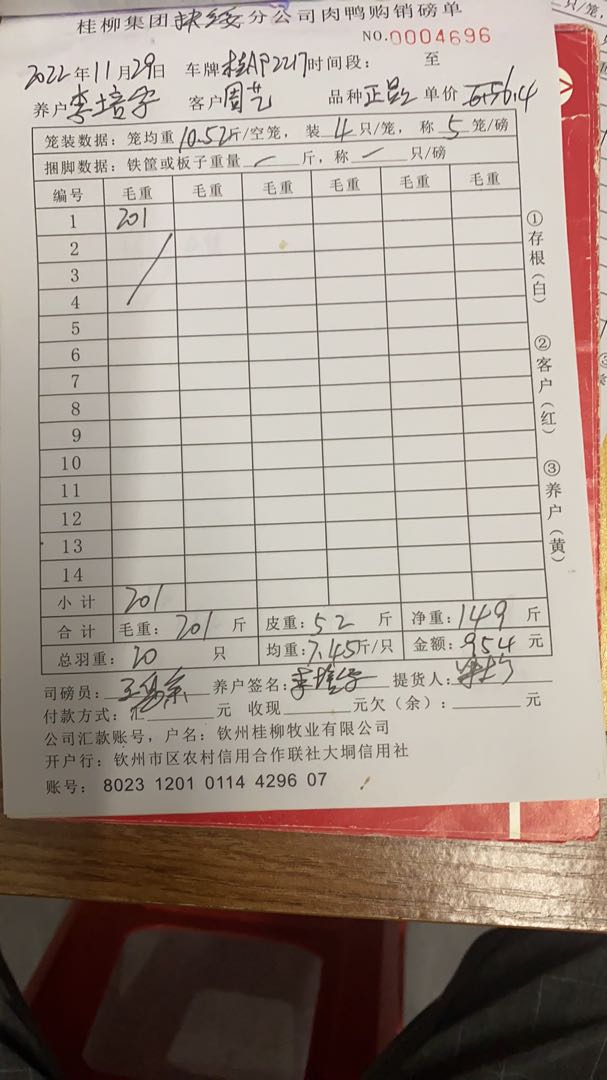 桂柳集团扶绥分公司肉鸭购销磅单
NO.0004696
2022年11月29日 车牌桂AP2217时间段： 至
养户李培宇 客户周艺 品种正品 单价 6.4
笼装数据：笼均重10.52斤/空笼，装4只/笼，称5笼/磅
捆脚数据：铁筐或板子重量/斤，称/只/磅
编号 毛重 毛重 毛重 毛重 毛重 毛重
1 201
2
3
4
5
6
7
8
9
10
11
12
13
14
小计 201
合计 毛重：201斤 皮重：52斤 净重：149斤
总羽重：20只 均重：7.45斤/只 金额：954元
司磅员： 养户签名：李培宇 提货人：
付款方式：汇 元 收现 元欠（余）： 元
公司汇款账号，户名：钦州桂柳牧业有限公司
开户行：钦州市区农村信用合作联社大垌信用社
账号：8023 1201 0114 4296 07
①存根（白） ②客户（红） ③养户（黄）